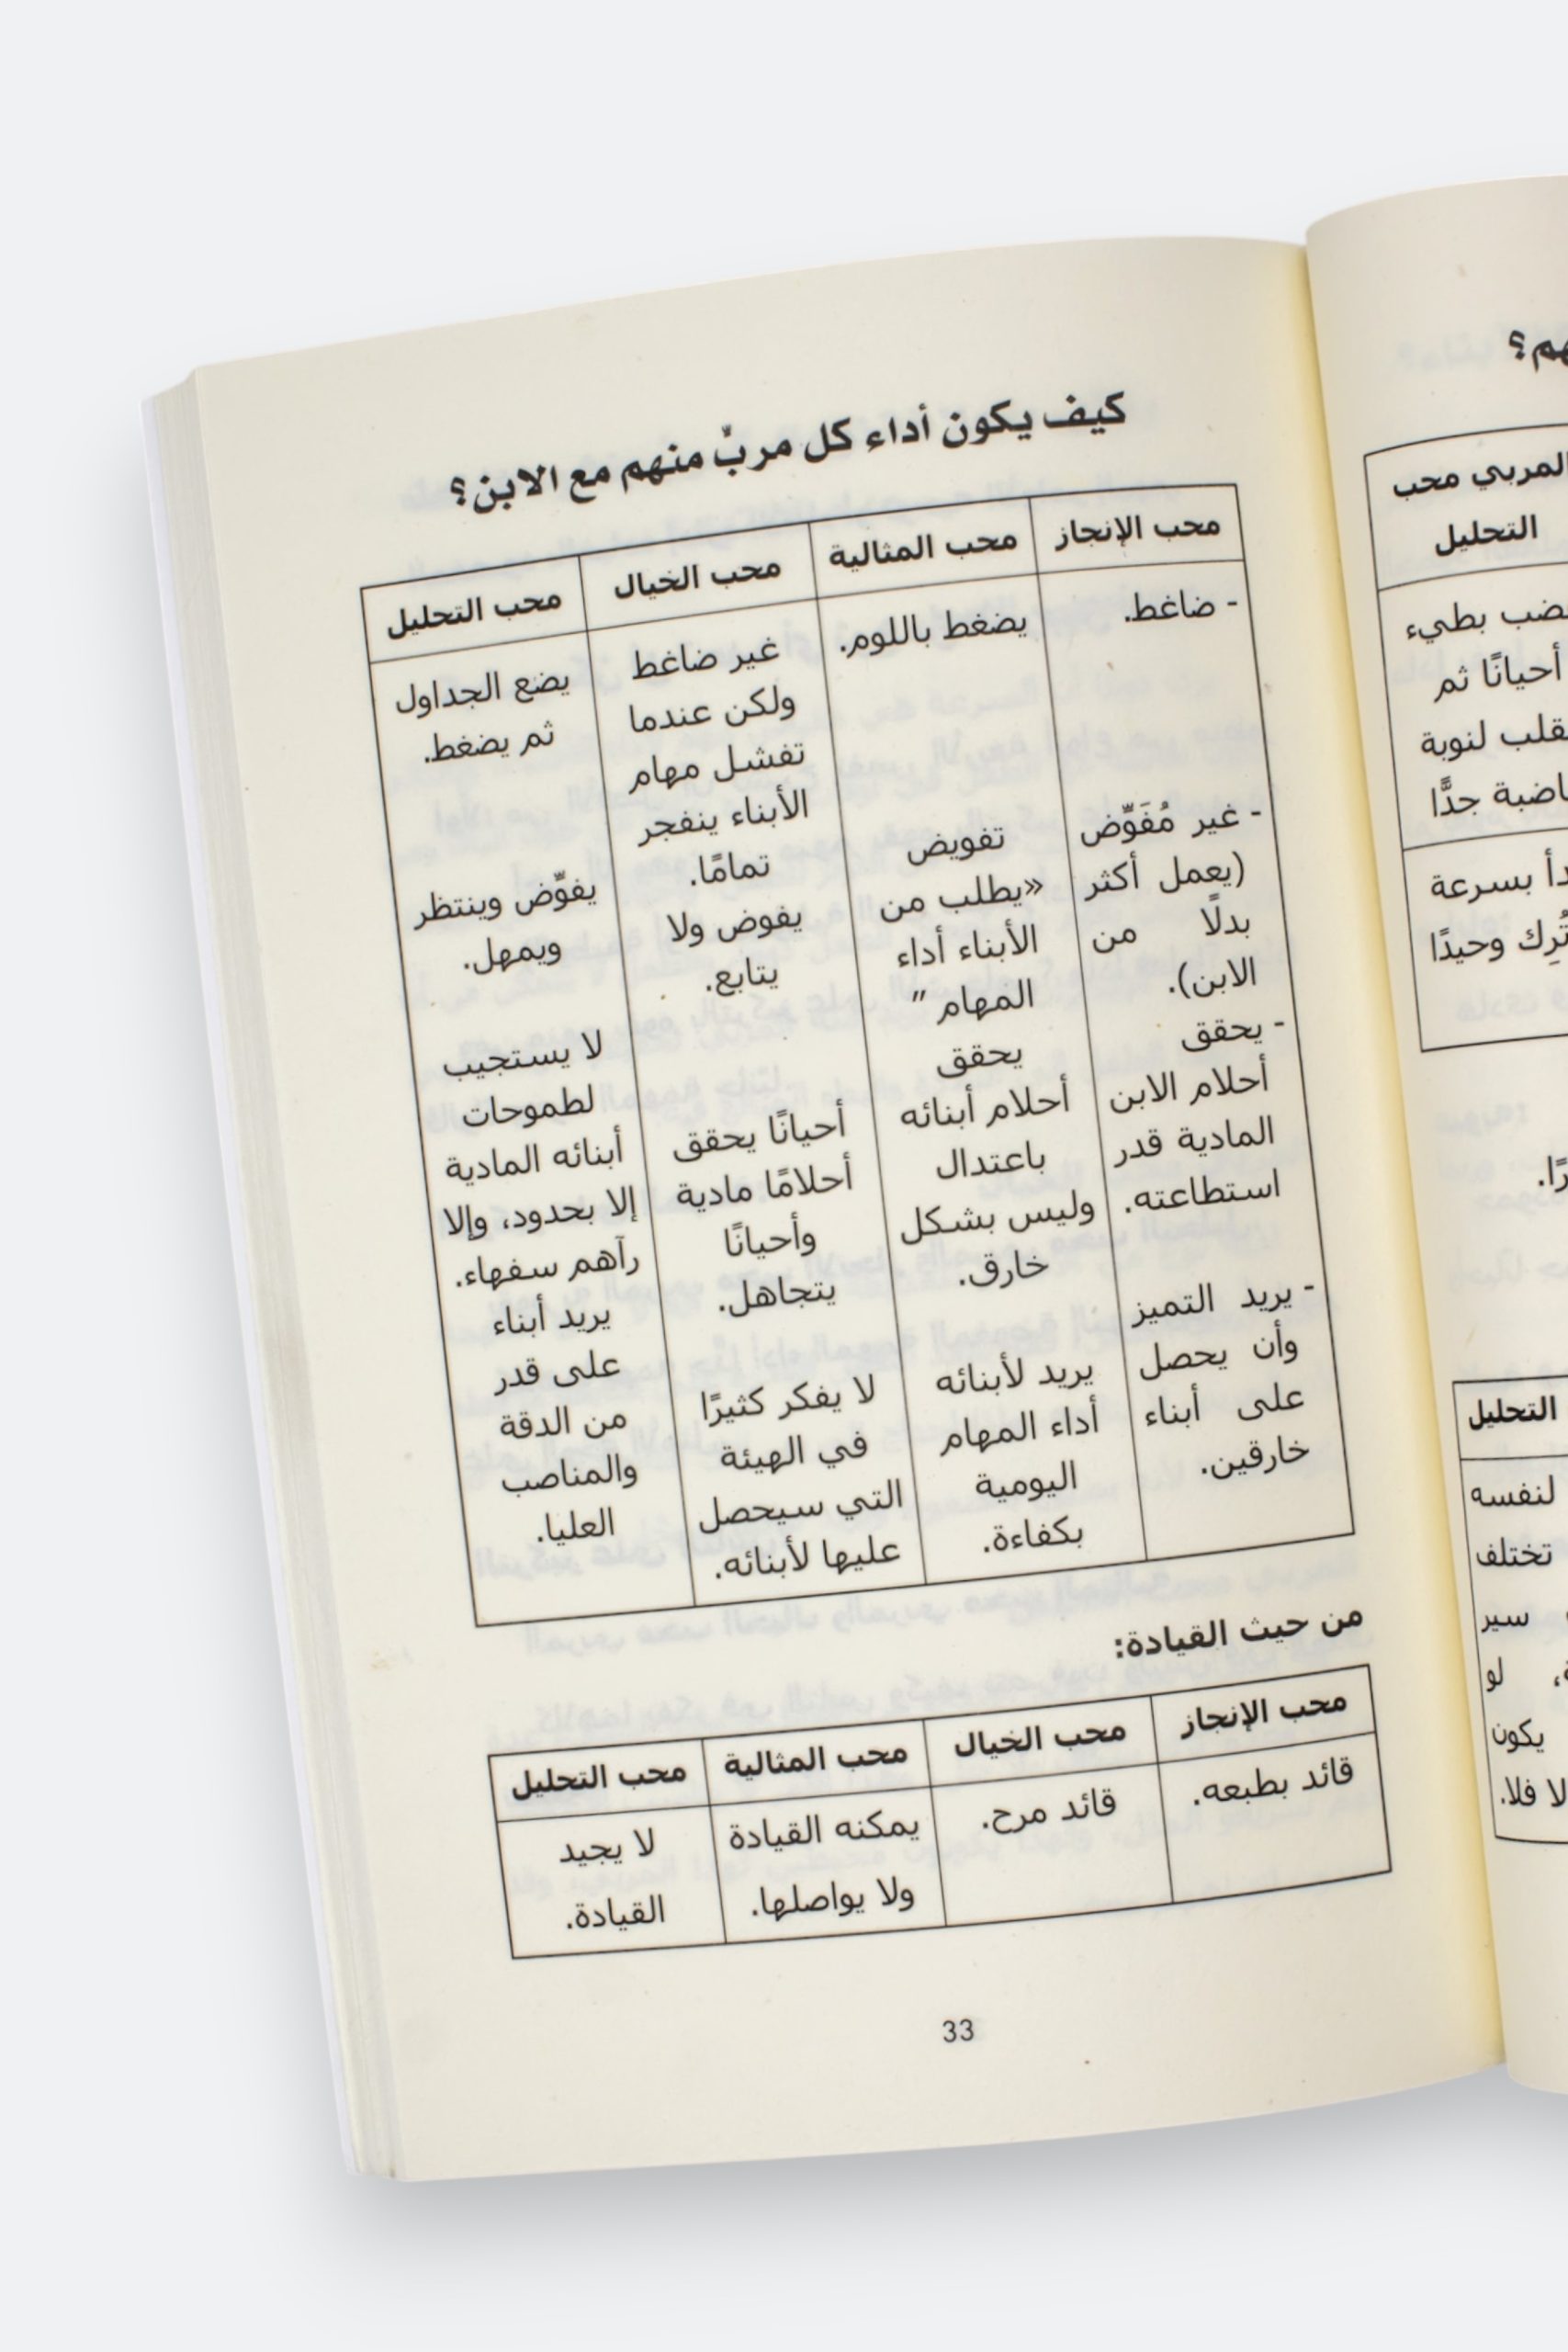 المربي محب
التحليل
بطيء
أحيانًا ثم
لنوبة
جدًّا
بسرعة
تُرِك وحيدًا
التحليل
لنفسه
تختلف
سير
لو
يكون
فلا.
كيف يكون أداء كل مربٍّ منهم مع الابن؟
محب الإنجاز
محب المثالية
محب الخيال
محب التحليل
- ضاغط.
- غير مُفَوِّض
(يعمل أكثر
بدلًا من
الابن).
- يحقق
أحلام الابن
المادية قدر
استطاعته.
- يريد التميز
وأن يحصل
على أبناء
خارقين.
يضغط باللوم.
تفويض
«يطلب من
الأبناء أداء
المهام ”
يحقق
أحلام أبنائه
باعتدال
وليس بشكل
خارق.
يريد لأبنائه
أداء المهام
اليومية
بكفاءة.
غير ضاغط
ولكن عندما
تفشل مهام
الأبناء ينفجر
تمامًا.
يفوض ولا
يتابع.
أحيانًا يحقق
أحلامًا مادية
وأحيانًا
يتجاهل.
لا يفكر كثيرًا
في الهيئة
التي سيحصل
عليها لأبنائه.
يضع الجداول
ثم يضغط.
يفوِّض وينتظر
ويمهل.
لا يستجيب
لطموحات
أبنائه المادية
إلا بحدود، وإلا
رآهم سفهاء.
يريد أبناء
على قدر
من الدقة
والمناصب
العليا.
من حيث القيادة:
محب الإنجاز
محب الخيال
محب المثالية
محب التحليل
قائد بطبعه.
قائد مرح.
يمكنه القيادة
ولا يواصلها.
لا يجيد
القيادة.
33